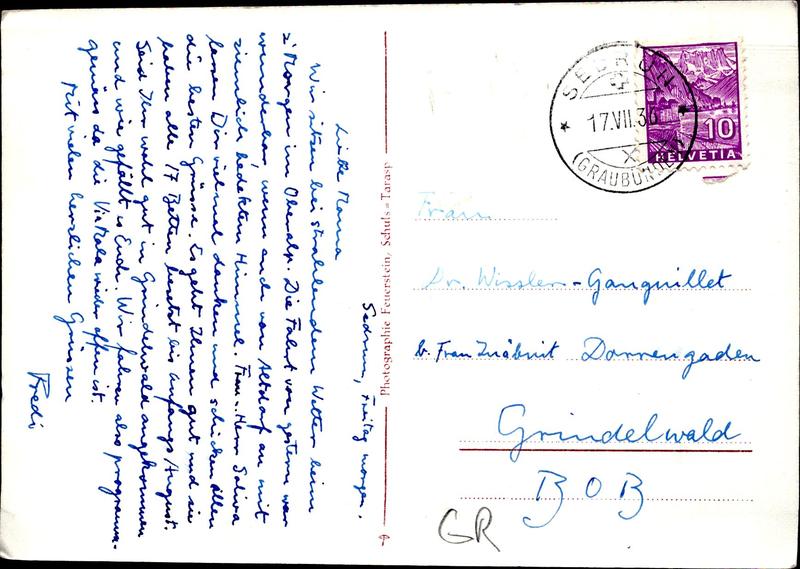 Sedrun, Freitag morgen.
Liebe Mama
Wir sitzen bei strahlendem Wetter beim
z'Morgen im Oberalp. Die Fahrt von gestern war
wunderbar, wenn auch von Altdorf an mit
ziemlich bedecktem Himmel. Frau u. Herr Soliva
lassen Dir vielmal danken und schicken allen
die besten Grüsse. Es geht Ihnen gut und sie
haben alle 17 Betten besetzt bis anfangs August.
Seid Ihr wohl gut in Grindelwald angekommen
und wie gefällt es Euch. Wir fahren also programm-
gemäss da die Viamala wieder offen ist.
Mit vielen herzlichen Grüssen
Fredi
Photographie Feuerstein, Schuls-Tarasp
SEDRUN
17.VII.3
(GRAUBÜNDEN)
10
HELVETIA
Frau
Dr. Wissler-Ganguillet
b. Frau Inäbnit Dorrengaden
Grindelwald
BOB
GR